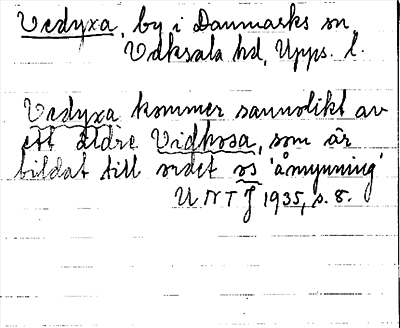 Vedyxa, by i Danmarks sn
Vaksala hd, Upps. l.
Vedyxa kommer sannolikt av
ett äldre Vidhosa, som är
bildat till ordet os 'åmynning'
UNTJ 1935, s. 8.